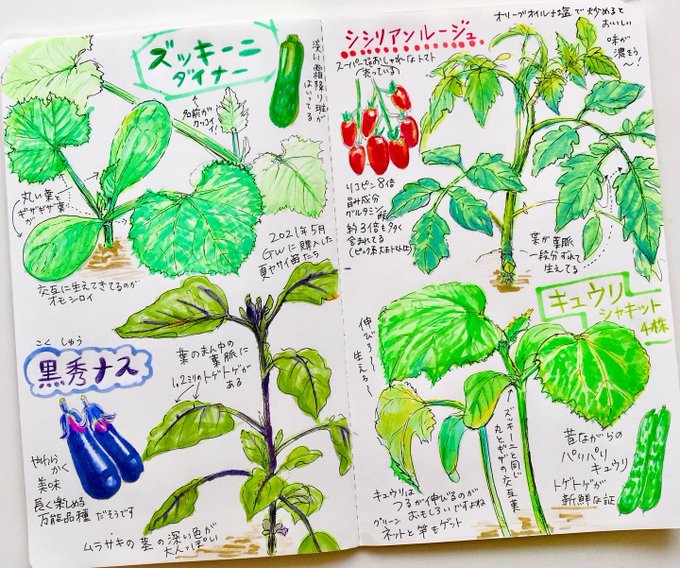 ズッキーニ
ダイナー
淡い霜降り斑が
はいってる
名前が
カッコ
イイ!
丸い葉と
ギザギザ葉
が
交互に生えてきてるのが
オモシロイ
2021年5月
GWに購入した
夏ヤサイ苗たち
こくしゅう
黒秀ナス
葉のまん中の
葉脈に
1、2ミリのトゲトゲが
ある
やわら
かく
美味
長く楽しめる
万能品種だそうです
ムラサキの茎の深い色が
大人っぽい
シシリアンルージュ
スーパーでもおしゃれなトマト
売っている
オリーブオイルと塩で炒めると
おいしい
味が
濃そう
〜!
リコピン8倍
旨み成分
グルタミン
酸
約3倍も多く
含まれてる
(ピンク系大玉トマト比)
葉が葉脈
一段分ずれて
生えてる
キュウリ
シャキット
4株
伸びろ〜
生えろ〜
ズッキーニと同じ
丸とギザの交互葉
昔ながらの
パリパリ
キュウリ
トゲトゲが
新鮮な証
キュウリは
つるが伸びるのが
おもしろいですよね
グリーン
ネットと竿もゲット